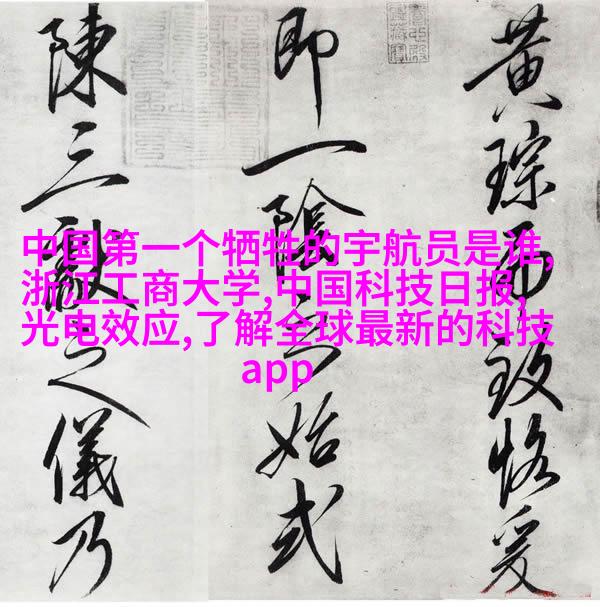 中国第一个牺牲的宇航员是谁,
浙江工商大学,中国科技日报,
光电效应,了解全球最新的科技
app
黄琮而致恪爰
即一陰之始式
陳三獻之儀乃